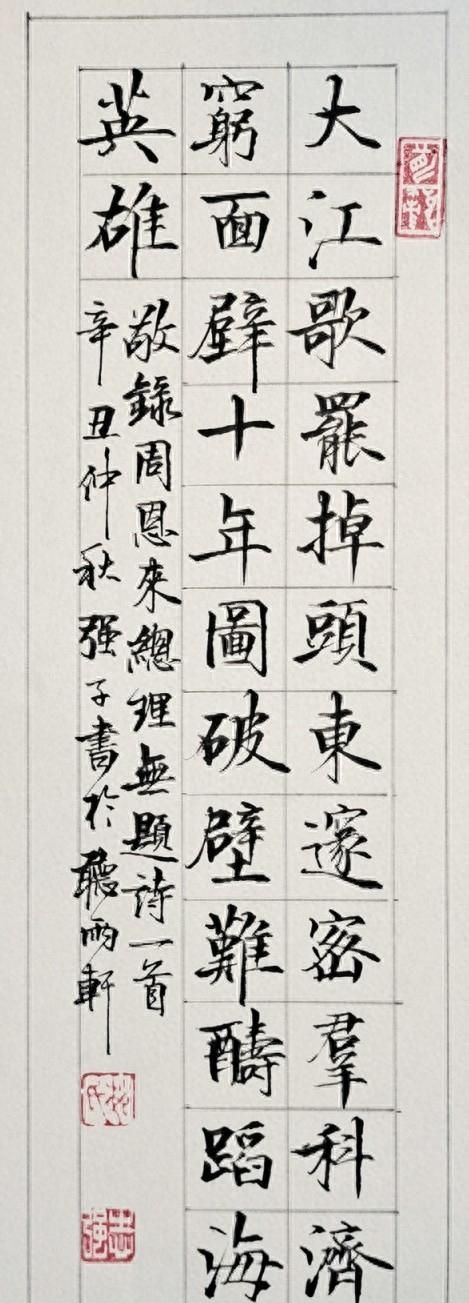 大江歌罷掉頭東邃密羣科濟
窮面壁十年圖破壁難酬蹈海
英雄
敬錄周恩來總理無題詩一首
辛丑仲秋强子書於聽雨軒